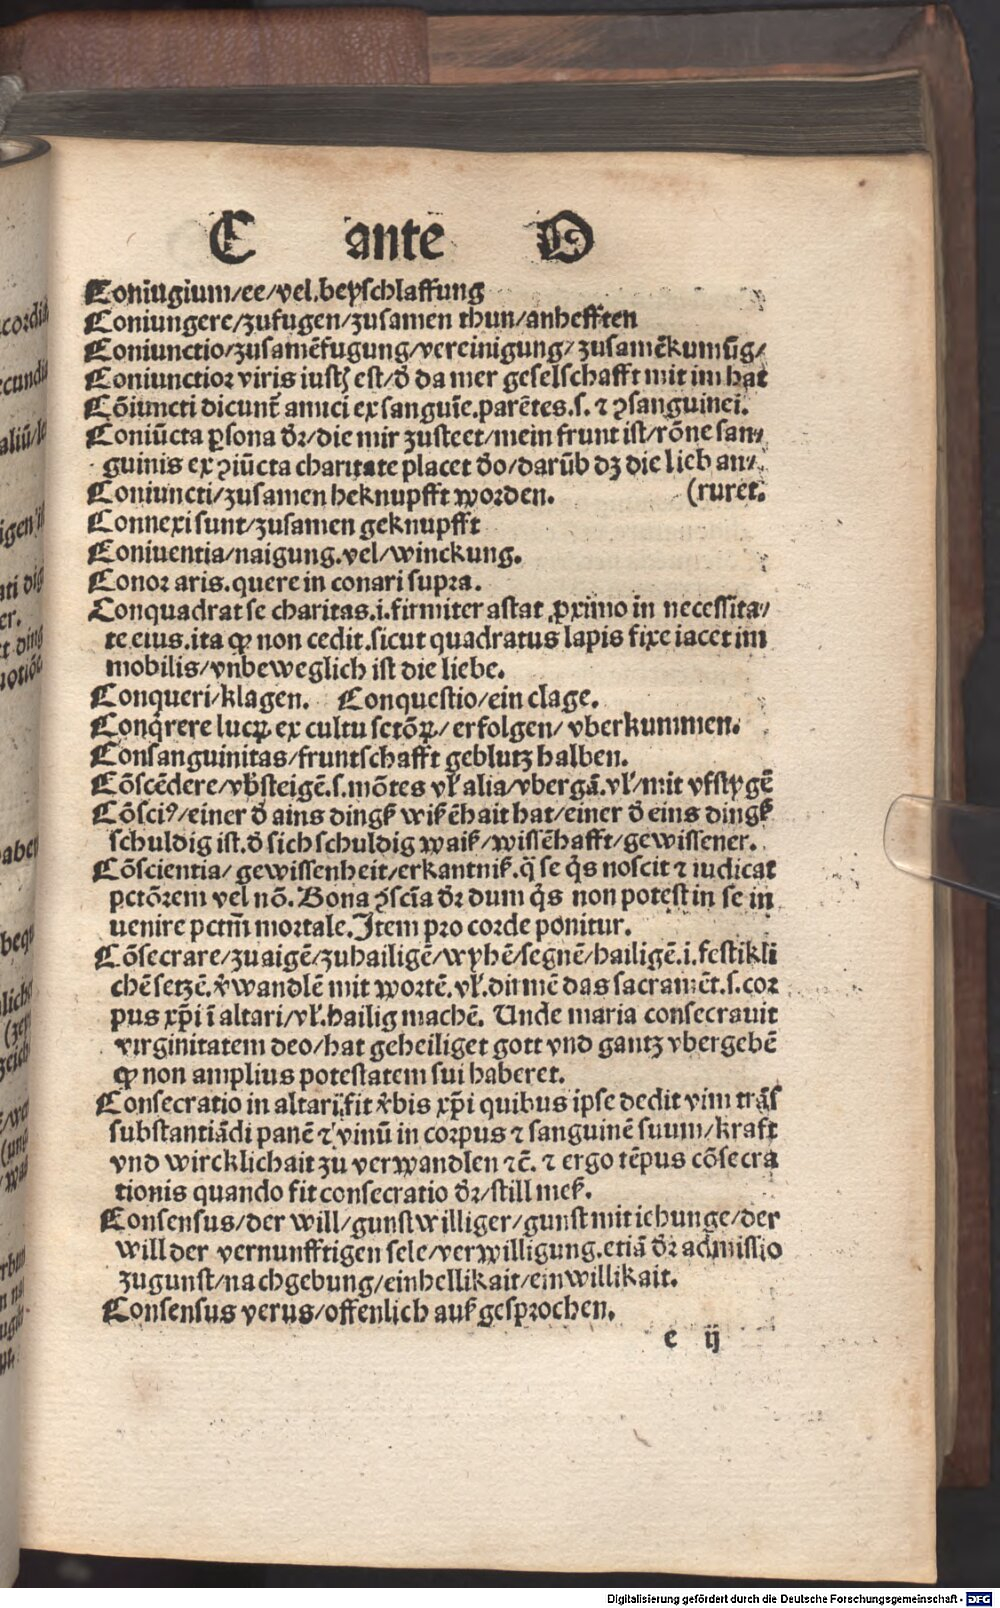 C ante O
Coniugium/ee/vel.beyschlaffung
Coniungere/zufugen/zusamen thun/anhefften
Coniunctio/zusamēfugung/vereinigung/zusamēkumūg/
Coniunctior viris iustꝭ est/ð da mer geselschafft mit im hat
Cōiuncti dicunt̄ amici ex sanguīe.parētes.s.⁊ ꝯsanguinei.
Coniūcta ꝑsona ðr/die mir zusteet/mein frunt ist/rōne san/
guinis ex ꝯiūcta charitate placet ðo/darūb dz die lieb an/
Coniuncti/zusamen beknupfft worden. (ruret.
Connexi sunt/zusamen geknupfft
Coniventia/naigung.vel/winckung.
Conor aris.quere in conari supra.
Conquadrat se charitas.i.firmiter astat ꝓximo in necessita/
te eius.ita ꝙ non cedit.sicut quadratus lapis fixe iacet im
mobilis/vnbeweglich ist die liebe.
Conqueri/klagen. Conquestio/ein clage.
Conq̄rere lucꝝ ex cultu sctōꝝ/erfolgen/vberkummen.
Consanguinitas/fruntschafft geblutz halben.
Cōscēdere/vbsteigē.s.mōtes vl̓ alia/vbergā.vl̓/mit vfstygē
Cōsciꝰ/einer ð ains dingß wißēhait hat/einer ð eins dingß
schuldig ist.ð sich schuldig waiß/wissēhafft/gewissener.
Cōscientia/gewissenheit/erkantniß.q̄ se q̄s noscit ⁊ iudicat
pctōrem vel nō. Bona ꝯscīa ðr dum q̄s non potest in se in
uenire pctm̄ mortale. Item pro corde ponitur.
Cōsecrare/zuaigē/zuhailigē/wyhē/segnē/hailigē.i.festikli
chē setzē.v̄wandlē mit wortē.vl̓.ditmē das sacramēt.s.cor
pus xp̄i ī altari/vl̓.hailig machē. Unde maria consecrauit
virginitatem deo/hat geheiliget gott vnd gantz vbergebē
ꝙ non amplius potestatem sui haberet.
Consecratio in altari fit v̄bis xp̄i quibus ipse dedit vim trās
substantiādi panē ⁊ vinū in corpus ⁊ sanguinē suum/kraft
vnd wircklichait zu verwandlen ⁊c̄.⁊ ergo tēpus cōsecra
tionis quando fit consecratio ðr/still meß.
Consensus/der will/gunstwilliger/gunst mit iehunge/der
will der vernunfftigen sele/verwilligung.etiā ðr admissio
zugunst/nachgebung/einhellikait/einwillikait.
Consensus verus/offenlich auß gesprochen.
e ij
Digitalisierung gefördert durch die Deutsche Forschungsgemeinschaft - DFG